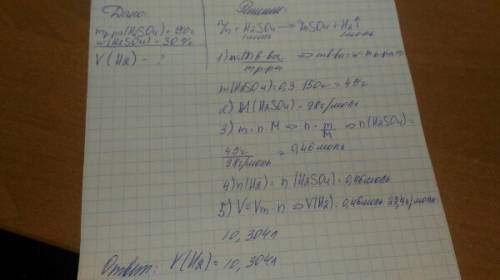 Дано:
m р-р(H2SO4) = 150г
w(H2SO4) = 30%
V(H2) - ?
Решение
Zn + H2SO4 → ZnSO4 + H2↑
1моль 1моль
1) w = m в-ва / m р-ра ⇒ m в-ва = w · m р-ра
m(H2SO4) = 0,3 · 150г = 45г
2) M(H2SO4) = 98г/моль
3) m = n · M ⇒ n = m/M ⇒ n(H2SO4) =
45г / 98г/моль = 0,46моль
4) n(H2) = n(H2SO4) = 0,46моль
5) V = Vm · n ⇒ V(H2) = 0,46моль · 22,4г/моль =
10,304л
Ответ: V(H2) = 10,304л